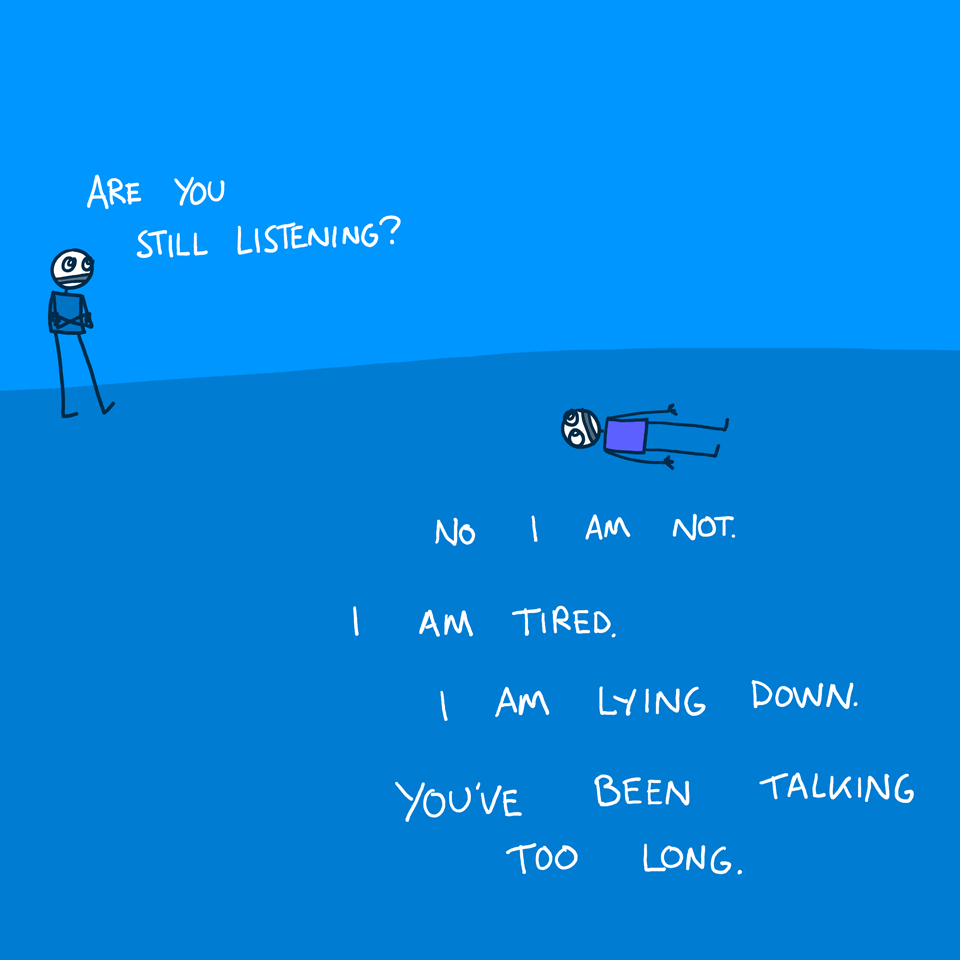 ARE YOU
STILL LISTENING?
NO I AM NOT.
I AM TIRED.
I AM LYING DOWN.
YOU'VE BEEN TALKING
TOO LONG.